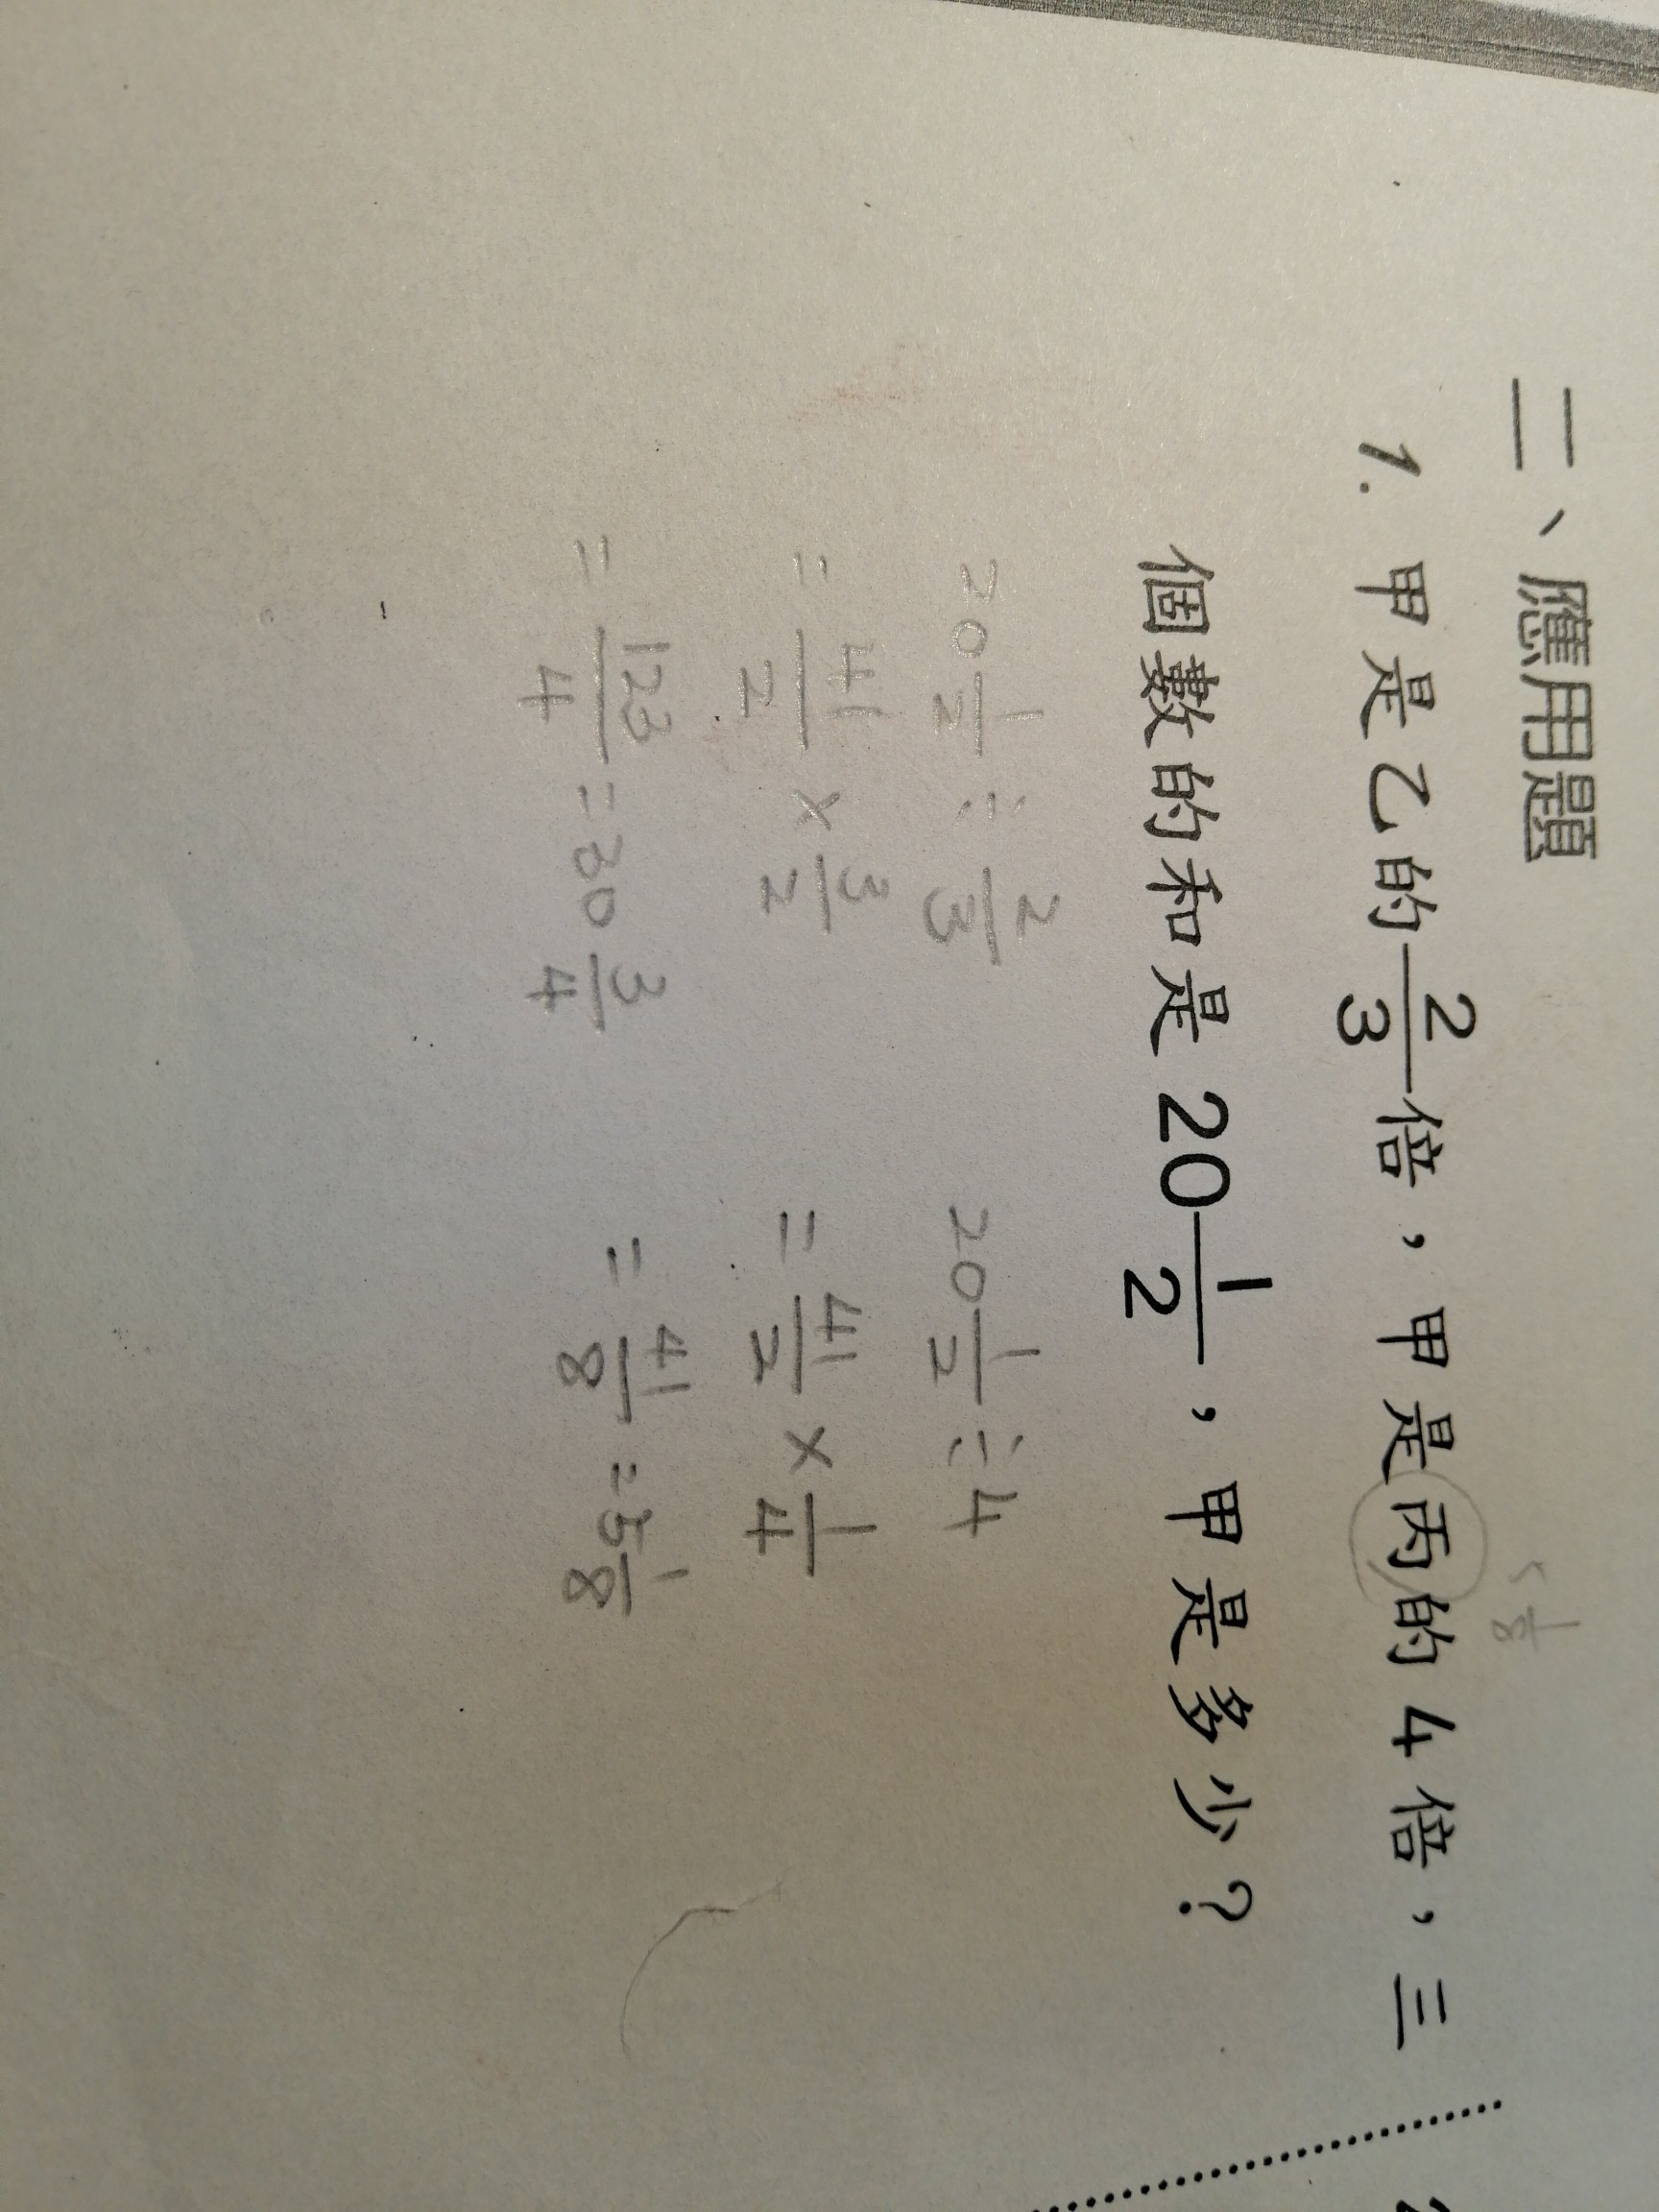 二、應用題
1. 甲是乙的2/3倍，甲是丙的4倍，三
個數的和是20 1/2，甲是多少？
20 1/2 ÷ 2/3
= 41/2 × 3/2
= 123/4 = 30 3/4
20 1/2 ÷ 4
= 41/2 × 1/4
= 41/8 = 5 1/8